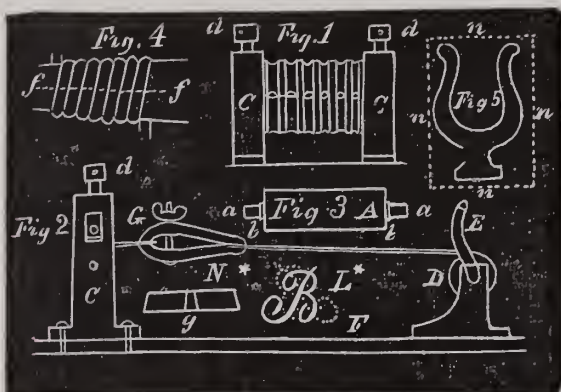 Fig. 4
f f
d Fig. 1 d
C C
n
n Fig 5 n
n
d
Fig 2
C
G
a b Fig 3 A b a
N * L *
B
g
F
E
D